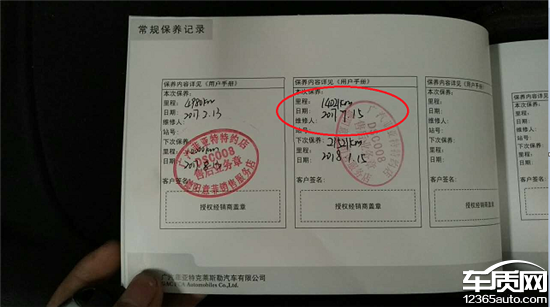 常规保养记录
保养内容详见《用户手册》
本次保养:
里程: 4980km
日期: 2017.2.13
维修人:
站号:
下次保养:
里程:
日期:
客户签名:
授权经销商盖章
DSC008
售后业务章
保养内容详见《用户手册》
本次保养:
里程: 14021km
日期: 2017.7.15
维修人:
站号:
下次保养:
里程: 21521km
日期: 2018.1.15
客户签名:
授权经销商盖章
DSC008
售后业务章
保养内容详
本次保养:
里程:
日期:
维修人:
站号:
下次保养
里程:
日期:
客户签名:
授权
广汽菲亚特克莱斯勒汽车有限公司
GAC FCA Automobiles Co.,Ltd.
车质网
12365auto.com